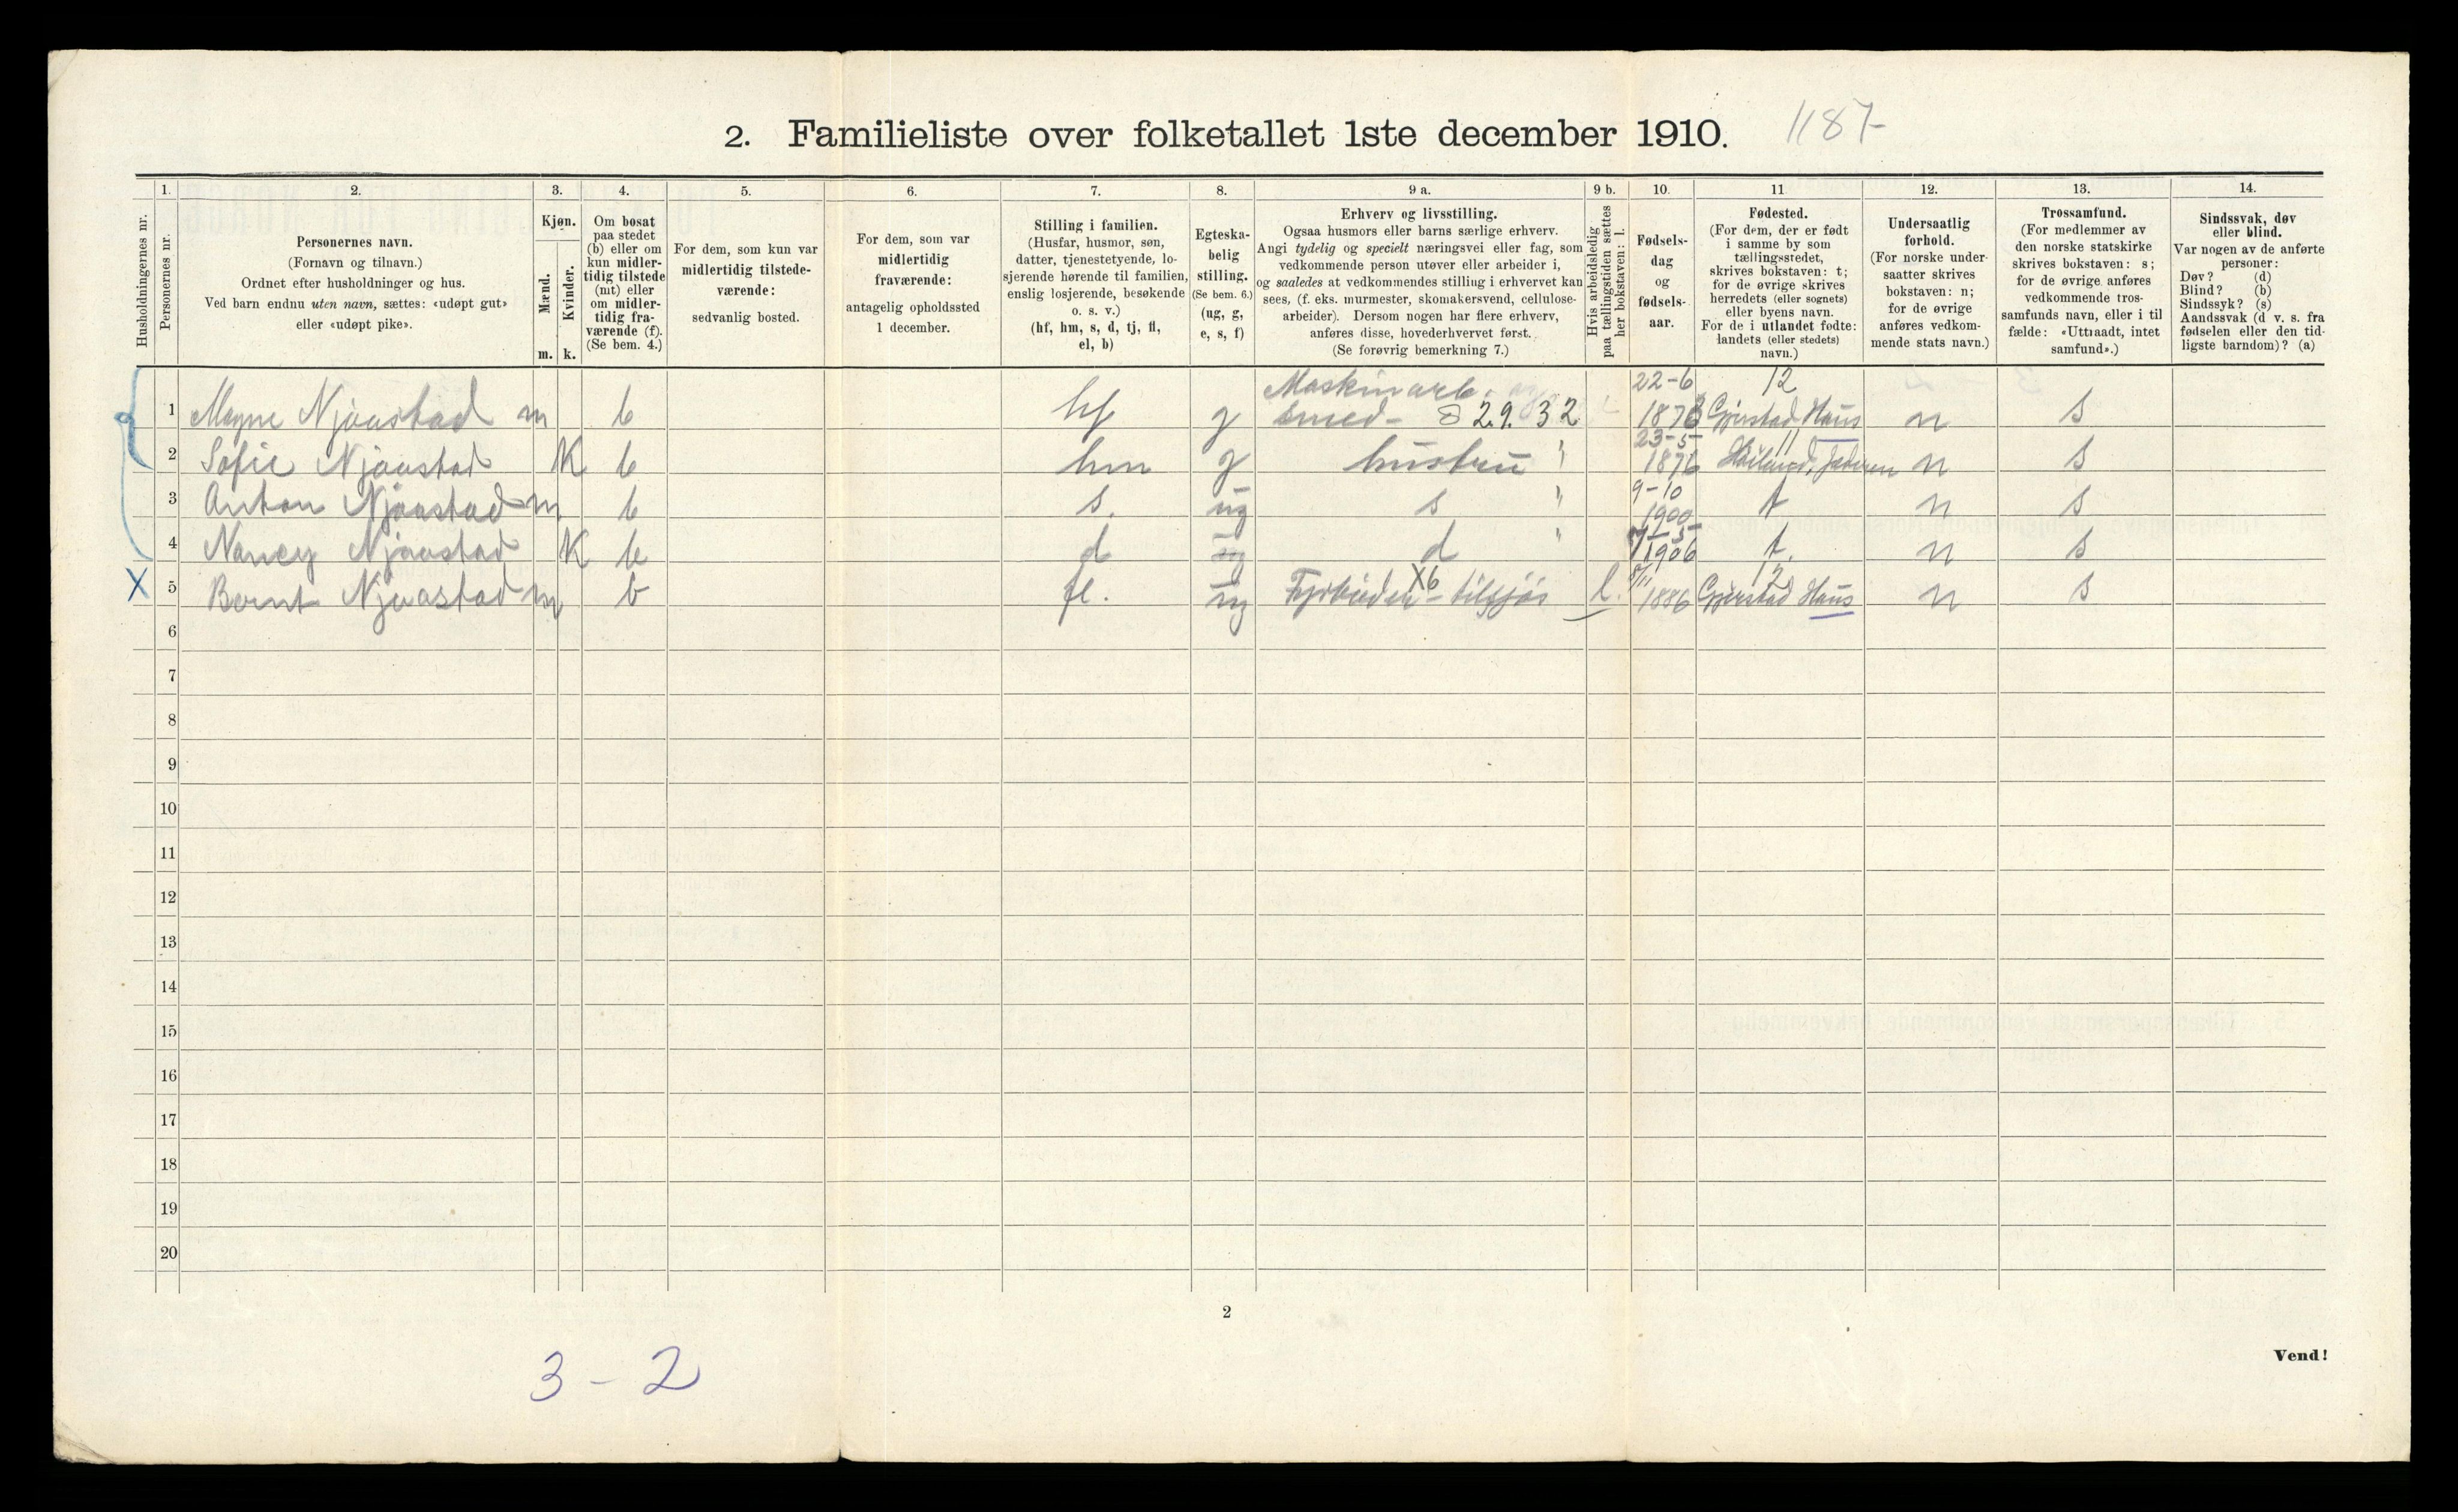 2. Familieliste over folketallet 1ste december 1910. 1187
1. 2. 3. 4. 5. 6. 7. 8. 9 a. 9 b. 10. 11 12. 13. 14.
Husholdningernes nr.
Personernes nr.
Personernes navn.
(Fornavn og tilnavn.)
Ordnet efter husholdninger og hus.
Ved barn endnu uten navn, sættes: «udøpt gut»
eller «udøpt pike».
Kjøn.
Mænd.
Kvinder.
m. k.
Om bosat
paa stedet
(b) eller om
kun midler-
tidig tilstede
(mt) eller
om midler-
tidig fra-
værende (f).
(Se bem. 4.)
For dem, som kun var
midlertidig tilstede-
værende:
sedvanlig bosted.
For dem, som var
midlertidig
fraværende:
antagelig opholdssted
1 december.
Stilling i familien.
(Husfar, husmor, søn,
datter, tjenestetyende, lo-
sjerende hørende til familien,
enslig losjerende, besøkende
o. s. v.)
(hf, hm, s, d, tj, fl,
el, b)
Egteska-
belig
stilling.
(Se bem. 6.)
(ug, g,
e, s, f)
Erhverv og livsstilling.
Ogsaa husmors eller barns særlige erhverv.
Angi tydelig og specielt næringsvei eller fag, som
vedkommende person utøver eller arbeider i,
og saaledes at vedkommendes stilling i erhvervet kan
sees, (f. eks. murmester, skomakersvend, cellulose-
arbeider). Dersom nogen har flere erhverv,
anføres disse, hovederhvervet først.
(Se forøvrig bemerkning 7.)
Hvis arbeidsledig
paa tællingstiden sættes
her bokstaven: l.
Fødsels-
dag
og
fødsels-
aar.
Fødested.
(For dem, der er født
i samme by som
tællingsstedet,
skrives bokstaven: t;
for de øvrige skrives
herredets (eller sognets)
eller byens navn.
For de i utlandet fødte:
landets (eller stedets)
navn.)
Undersaatlig
forhold.
(For norske under-
saatter skrives
bokstaven: n;
for de øvrige
anføres vedkom-
mende stats navn.)
Trossamfund.
(For medlemmer av
den norske statskirke
skrives bokstaven: s;
for de øvrige anføres
vedkommende tros-
samfunds navn, eller i til
fælde: «Uttraadt, intet
samfund».)
Sindssvak, døv
eller blind.
Var nogen av de anførte
personer:
Døv? (d)
Blind? (b)
Sindssyk? (s)
Aandssvak (d v. s. fra
fødselen eller den tid-
ligste barndom)? (a)
Maskinarb. og 22-6 12
1 Magne Njaastad m b hf g smed - 8 29. 32 1873 Gjerstad, Haus n s
23-5 11
2 Sofie Njaastad K b hm g hustru " 1876 n s
9-10
3 Anton Njaastad m b s. ug s " 1900 t n s
4 Nancy Njaastad K b d ug d " 1906 t. n s
X6 8/11 12
X 5 Bernt Njaastad m b fl. ug Fyrbøder - tilsjøs l. 1886 Gjerstad Haus n s
6
7
8
9
10
11
12
13
14
15
16
17
18
19
20
2
Vend!
3 - 2